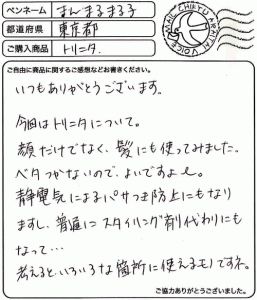 ペンネーム まんまるまる子
都道府県 東京都
ご購入商品 トリニタ.
MAIL CHIKYU ARAITAI VOICE
ご自由に商品に関するご感想などお書きください。
いつもありがとうございます。
今回はトリニタについて。
顔だけでなく、髪にも使ってみました。
ベタつかないので、よいですよ~。
静電気によるパサつき防止にもなり
ますし、普通にスタイリング剤代わりにも
なって…
考えると、いろいろな箇所に使えるモノですネ。
ご協力ありがとうございました。